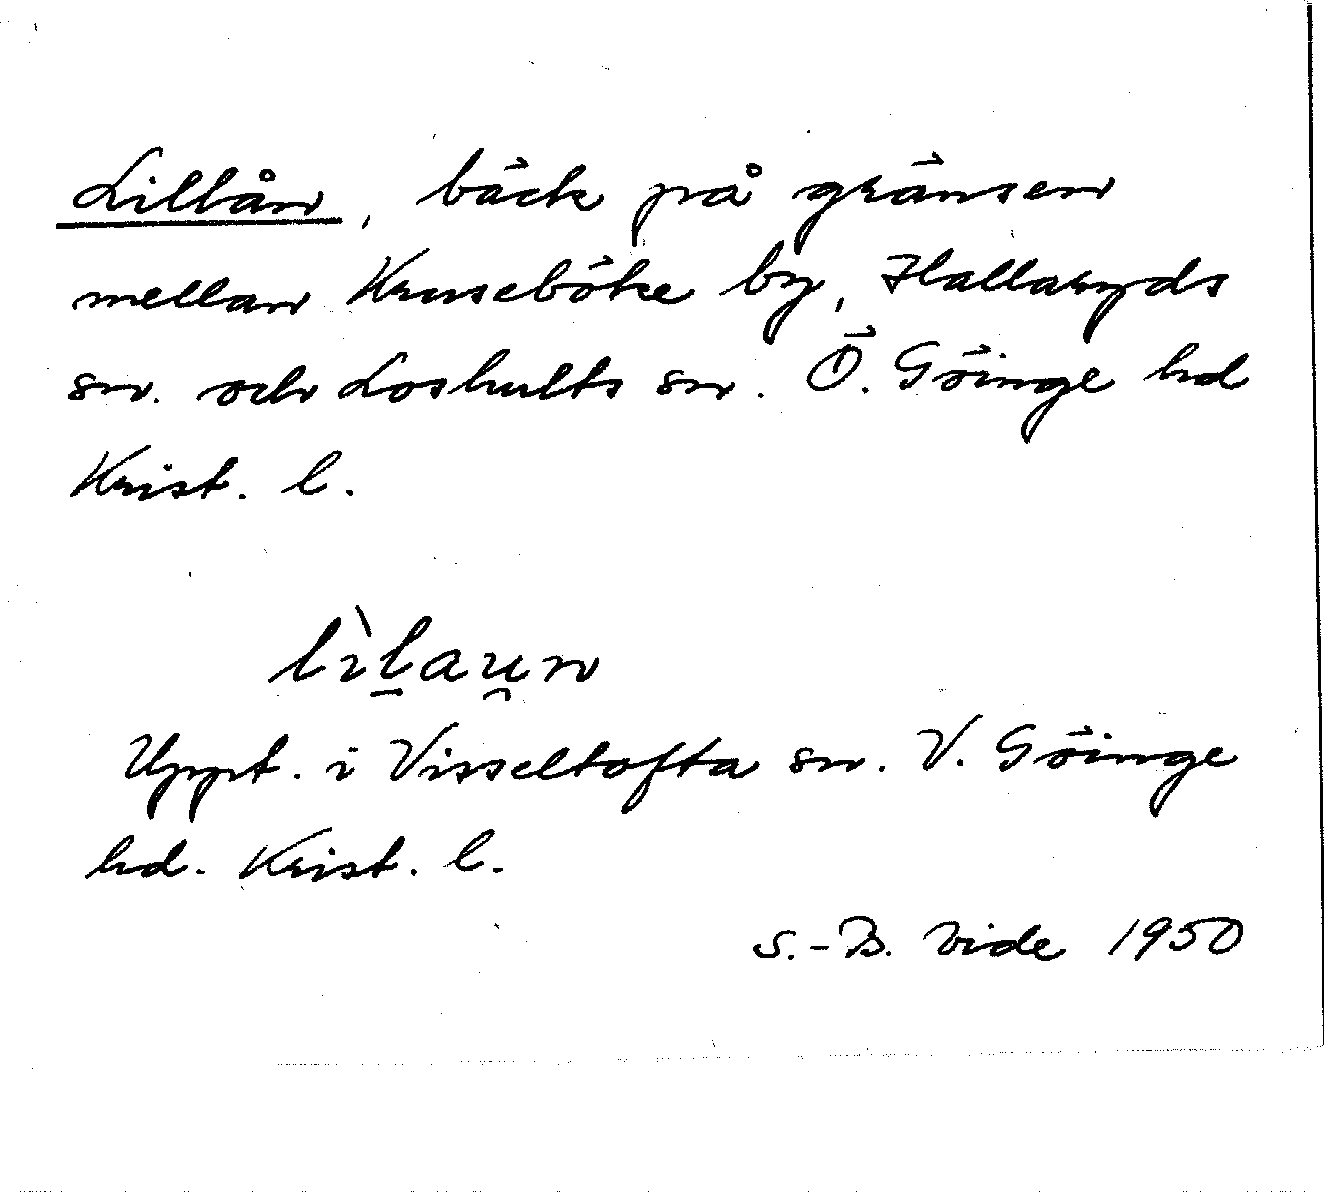 Lillån, bäck på gränsen
mellan Kruseböke by, Hallaryds
sn. och Loshults sn. Ö. Göinge hd
Krist. l.
lìḻau̯n
Uppt. i Visseltofta sn. V. Göinge
hd. Krist. l.
S.-B. Vide 1950